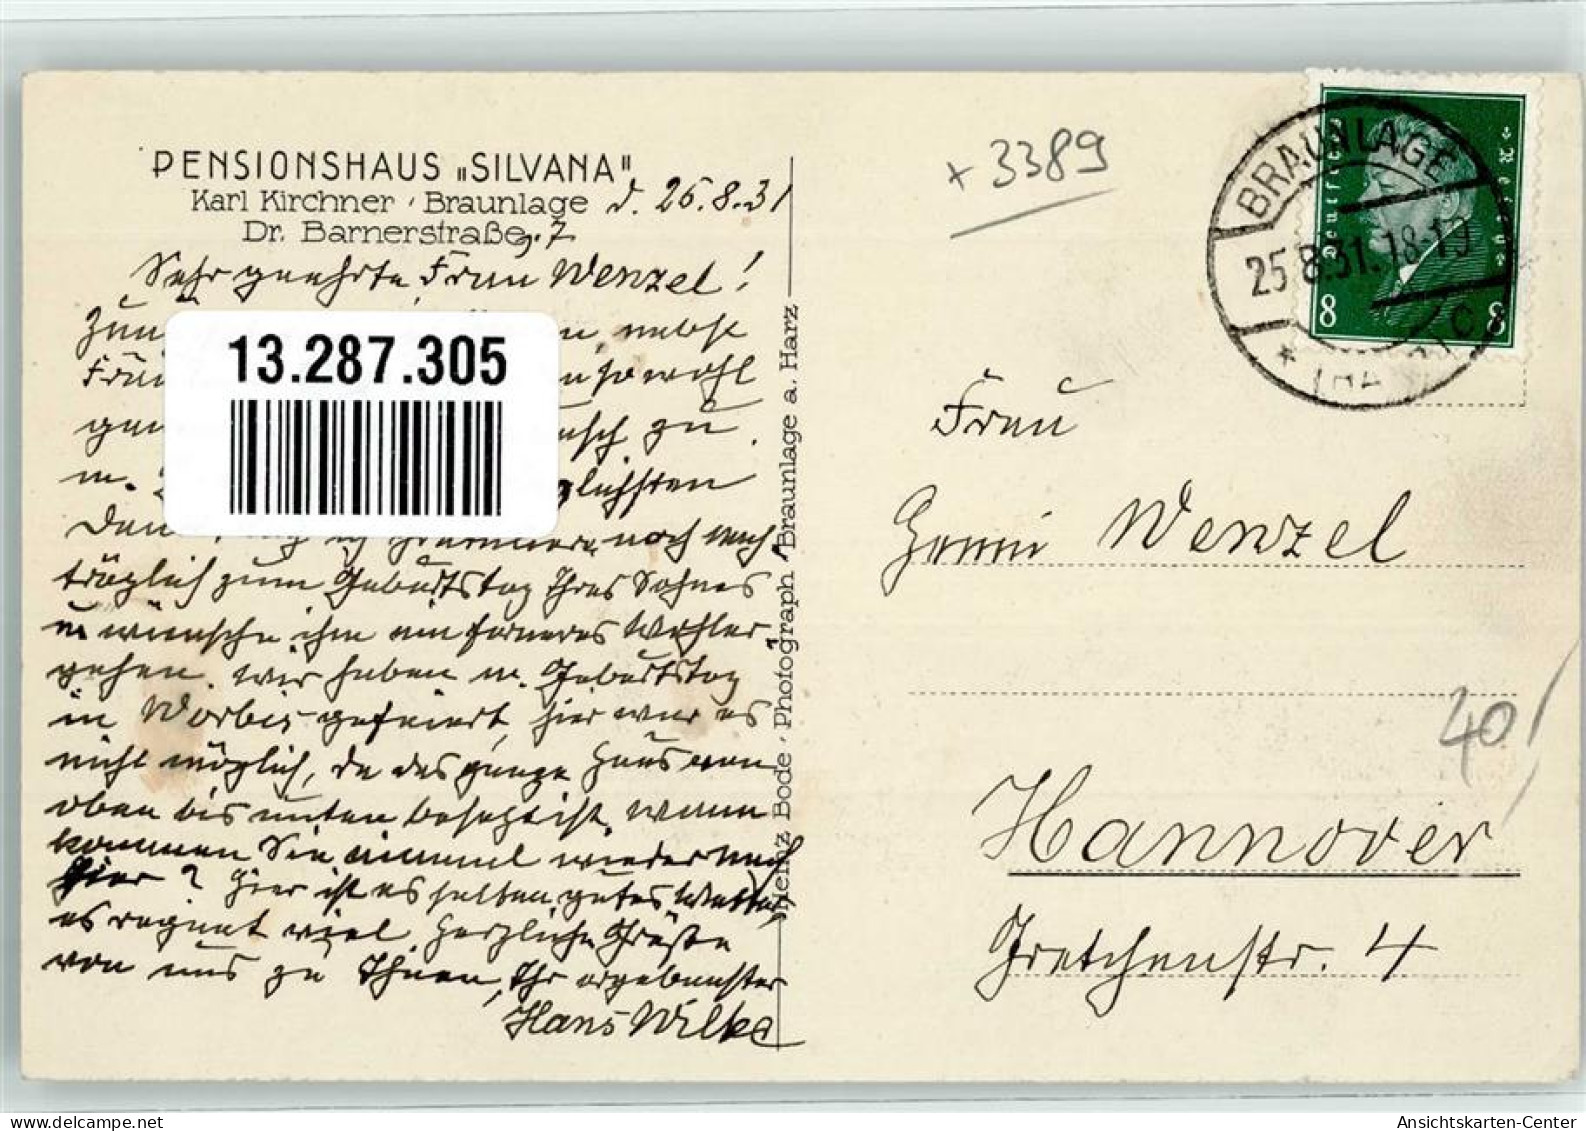 PENSIONSHAUS „SILVANA"
Karl Kirchner · Braunlage
Dr. Barnerstraße 7
d. 26.8.31
Sehr geehrte Frau Wenzel!
Zun nebst
Fräu sowohl
zu
m. lichsten
Dan noch nach-
träglich zum Geburtstag Ihres Sohnes
u. wünsche ihm ein ferneres Wohler-
gehen. Wir haben m. Geburtstag
in Worbis gefeiert, hier war es
nicht möglich, da das ganze Haus von
oben bis unten besetzt ist. Wann
kommen Sie einmal wieder nach
hier? Hier ist es selten gutes Wetter,
es regnet viel. Herzliche Grüße
von uns zu Ihnen, Ihr ergebenster
Hans Wilke
Heinz Bode · Photograph · Braunlage a. Harz
+ 3389
BRAUNLAGE
25.8.31.18-19
Deutsches Reich
8 8
Frau
Wenzel
Hannover
Gretchenstr. 4
40/
13.287.305
delcampe.net
coeurdecartes
Ansichtskarten-Center